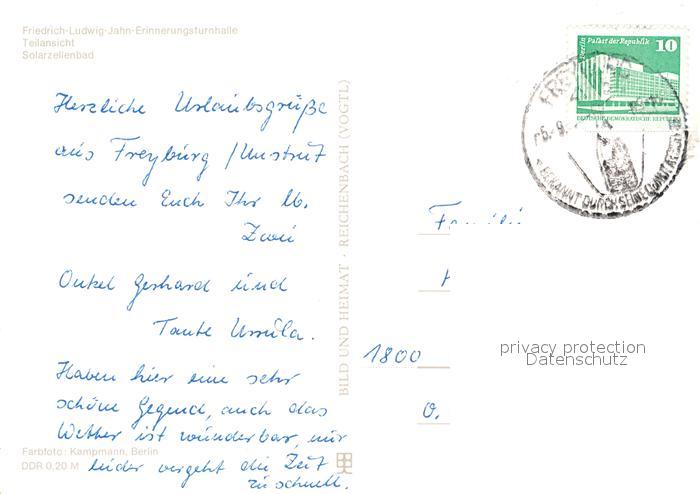 Friedrich-Ludwig-Jahn-Erinnerungsturnhalle
Teilansicht
Solarzellenbad
Herzliche Urlaubsgrüße
aus Freyburg /Unstrut
senden Euch Ihr lb.
Zwei
Onkel Gerhard und
Tante Ursula.
Haben hier eine sehr
schöne Gegend, auch das
Wetter ist wunderbar, nur
leider vergeht die Zeit
zu schnell.
Farbfoto: Kampmann, Berlin
DDR 0,20 M
BILD UND HEIMAT · REICHENBACH (VOGTL)
Berlin Palast der Republik 10
DEUTSCHE DEMOKRATISCHE REPUBLIK
BEKANNT DURCH SEINE
Familie
1800
privacy protection
Datenschutz